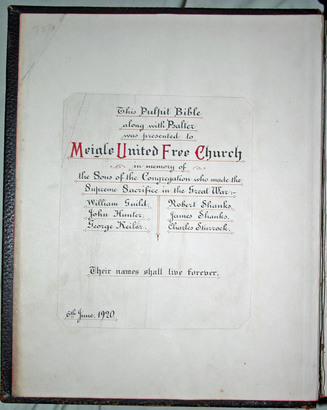 This Pulpit Bible
along with Psalter
was presented to
Meigle United Free Church
in memory of
the Sons of the Congregation who made the
Supreme Sacrifice in the Great War:-
William Guild. Robert Shanks.
John Hunter. James Shanks.
George Keiler. Charles Sturrock.
Their names shall live forever.
6th June, 1920.